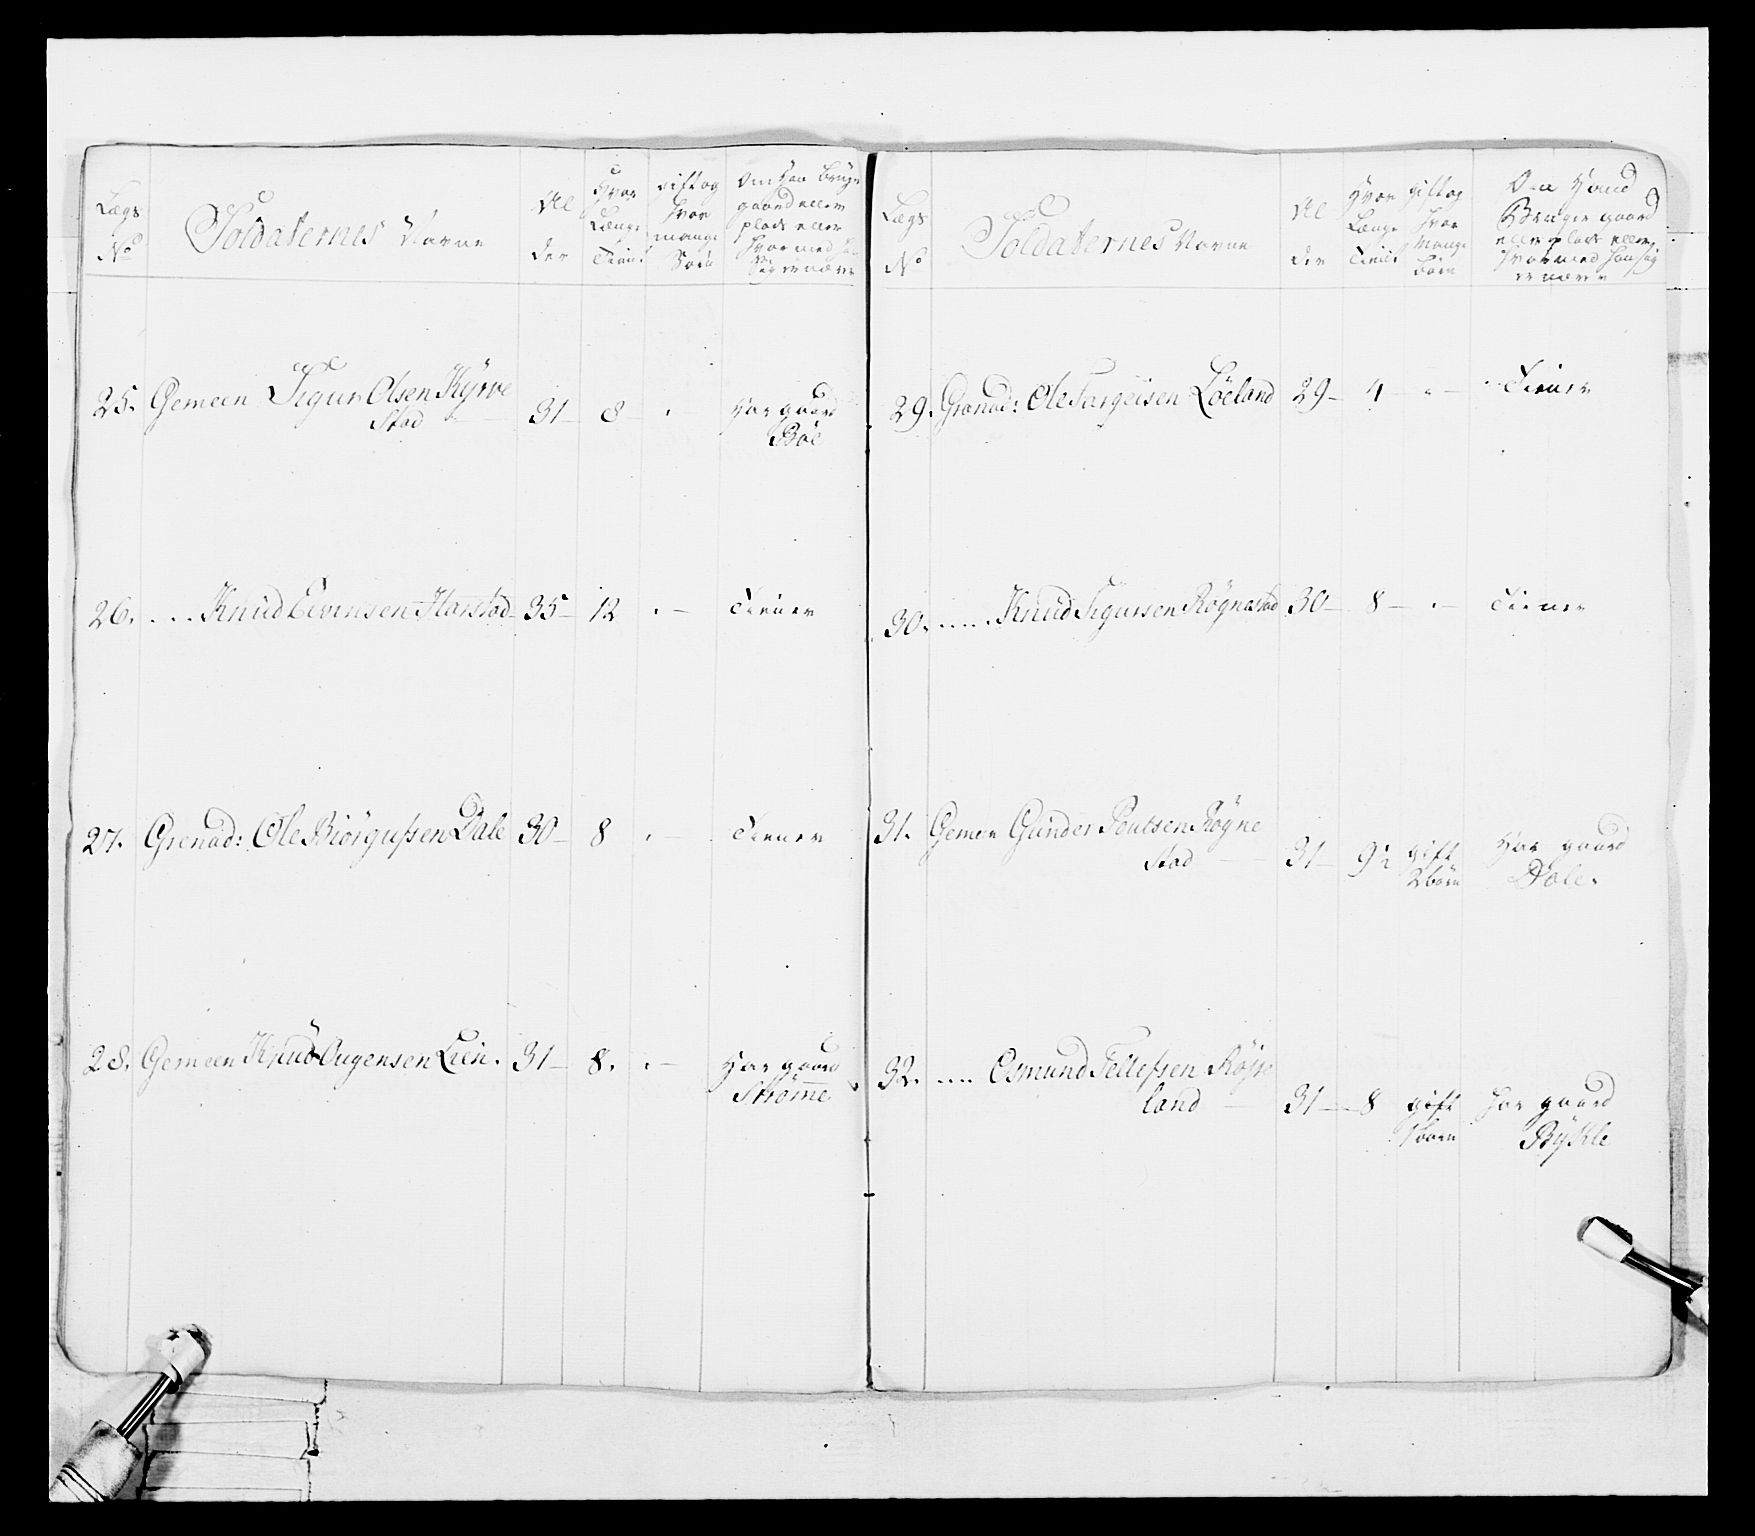 Lægs
No
Soldaternes Navne
Al
der
Hvor
Længe
Tient
gift og
hvor
mange
Børn
Om Han bruge
gaard eller
plads eller
hvormed han
Sig ernære
25. Gemeen Sigur Olsen Kyrve
Stad 31 8 Har gaard
Bøe
26. .... Knud Evensen Harstad 35 12 . Tiener
27. Grenad: Ole Biörgufsen Dale 30 8 . Tiener
28. Gemeen Knud Ougensen Lien. 31 8. . Har gaard
Strømme
Lægs
No
Soldaternes Navne
Al
der
Hvor
Længe
Tient
gift og
hvor
Mange
börn
Om Hand
Bruger gaard
eller plads eller
hvormed han sig
ernære
29. Granad: Ole Targeisen Löeland 29 4 . Tiener
30. ..... Knud Sigursen Rögnestad 30 8 . Tiener
31. Gemeen Gunder Poulsen Rögne
Stad 31 9½ gift Har gaard
2 börn Dale.
32. .... Osmund Tellefsen Röyse
land 31 8 gift har gaard
1 barn Bykle